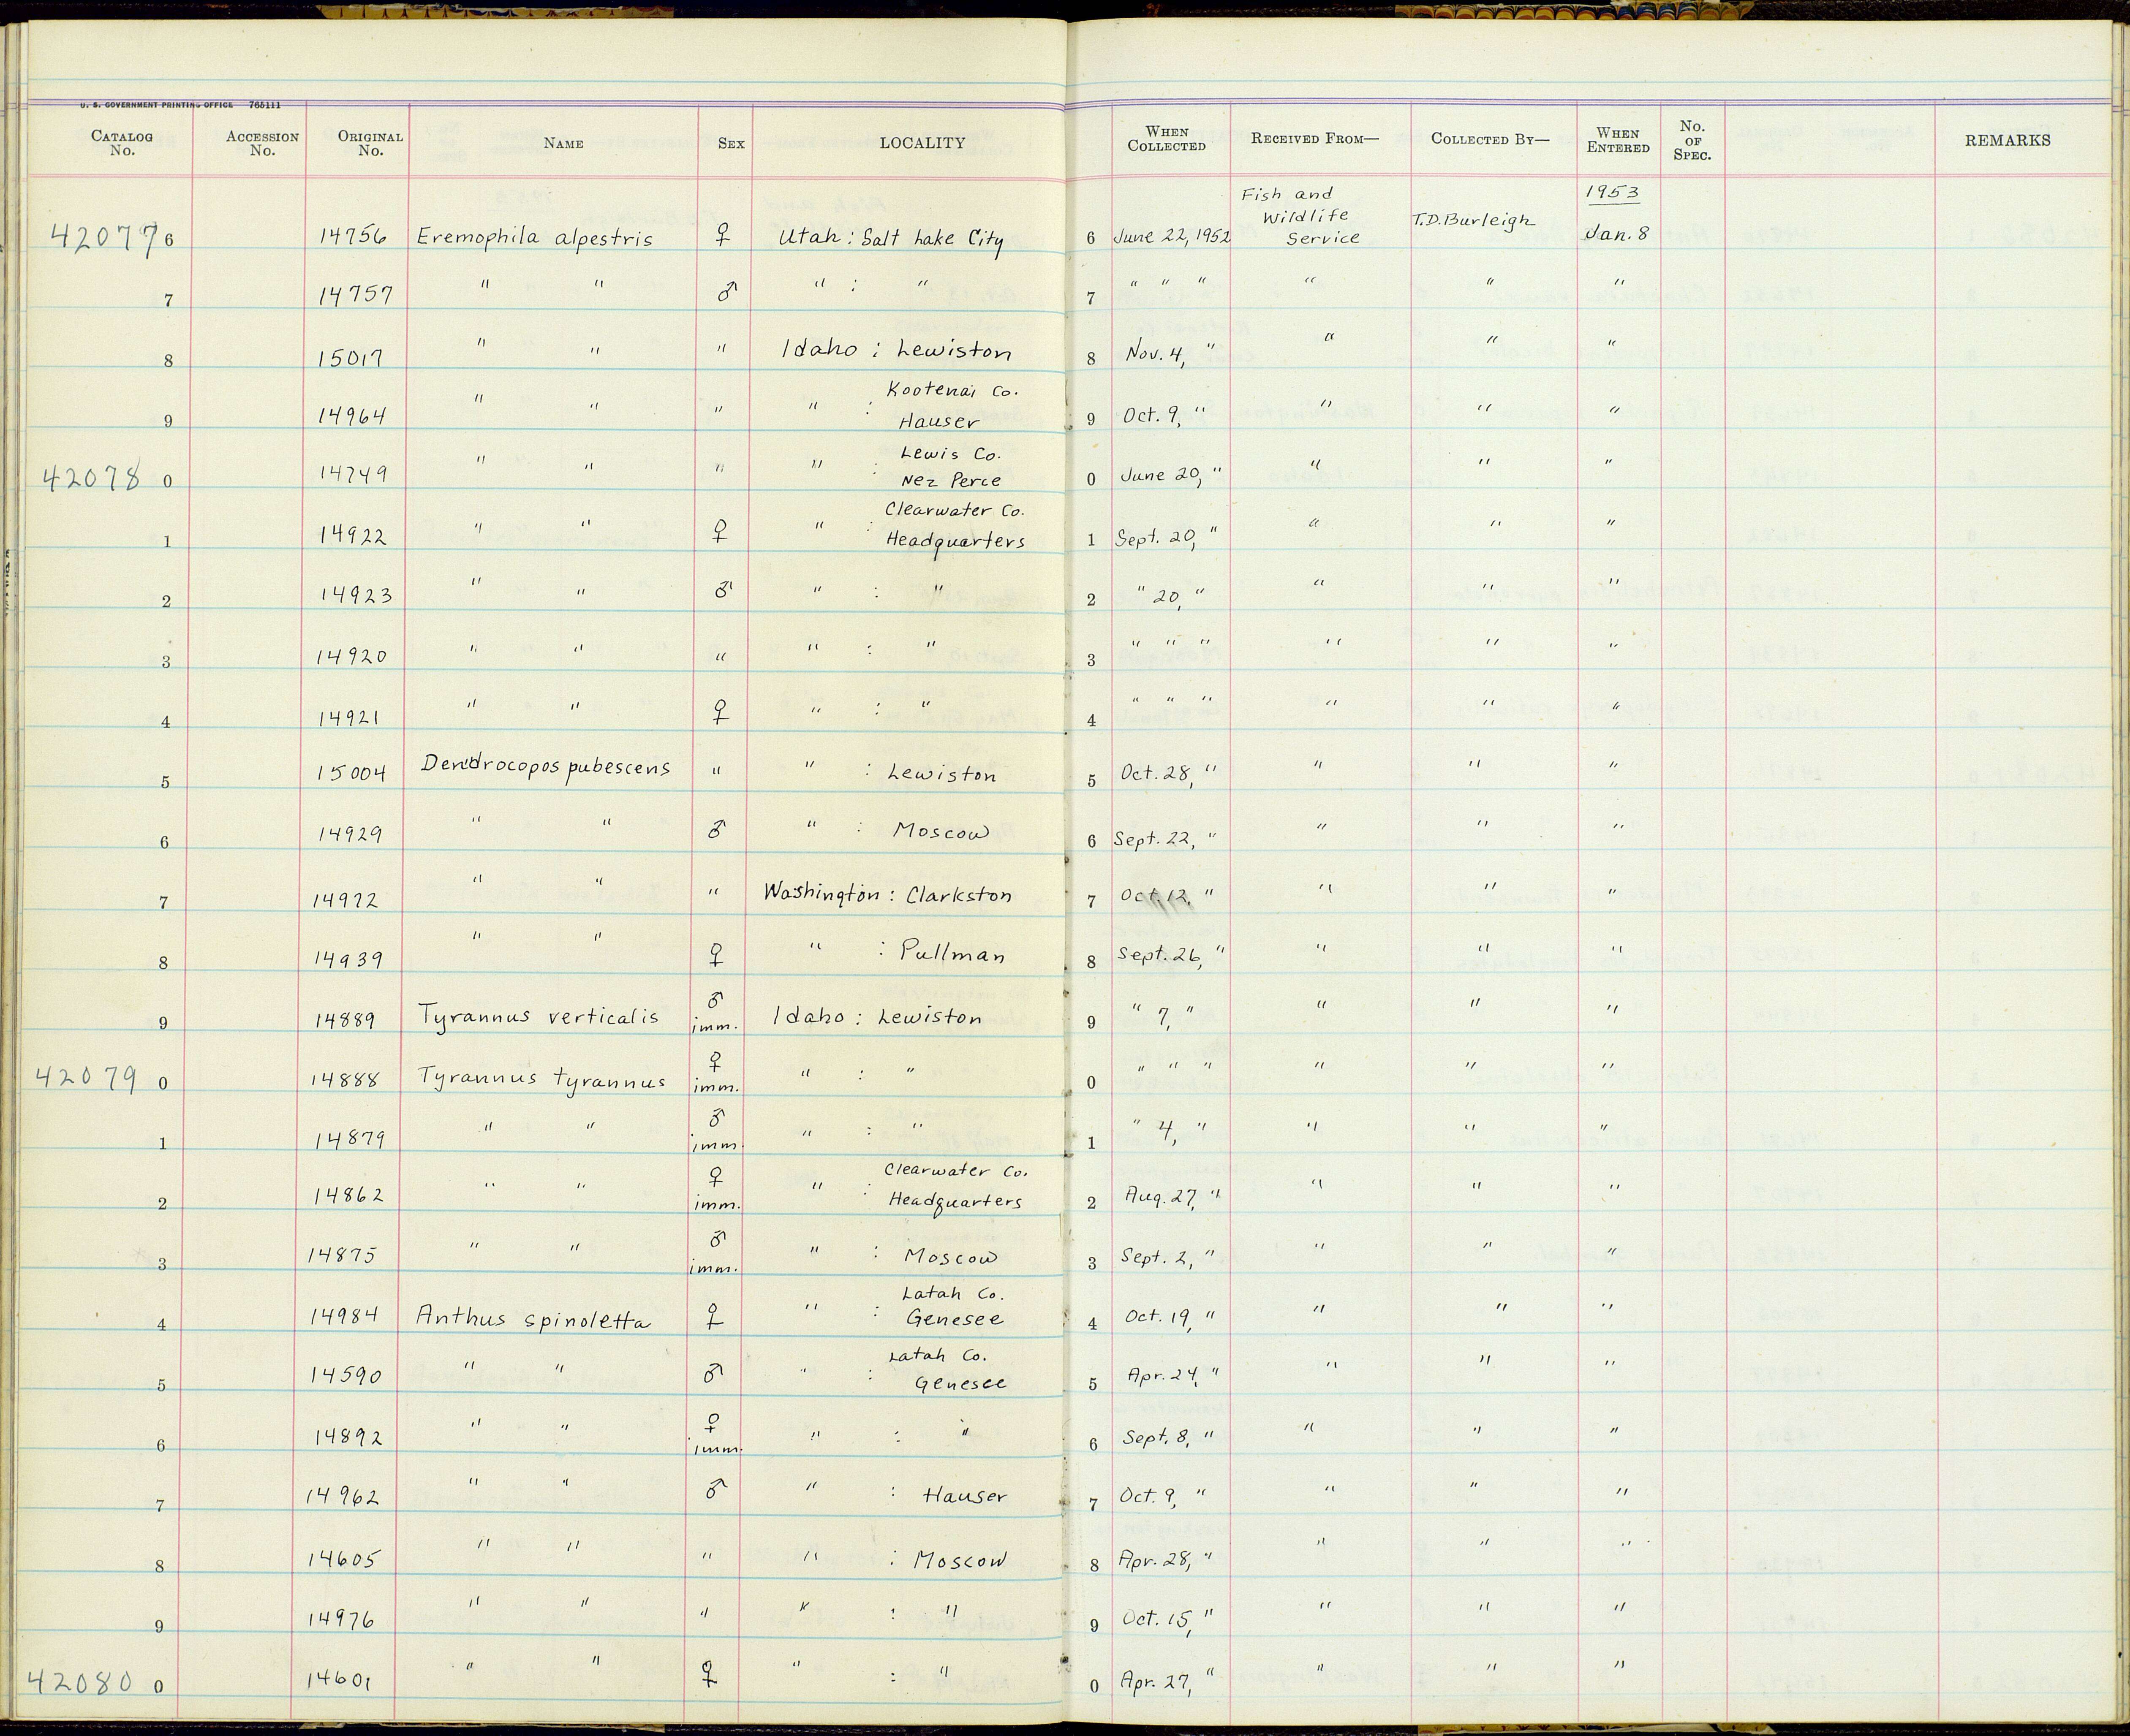 U. S. GOVERNMENT PRINTING OFFICE 765111
CATALOG No. ACCESSION No. ORIGINAL No. NAME SEX LOCALITY WHEN COLLECTED RECEIVED FROM— COLLECTED BY— WHEN ENTERED No. OF SPEC. REMARKS
420776 14756 Eremophila alpestris ♀ Utah : Salt Lake City 6 June 22, 1952 Fish and Wildlife Service T.D.Burleigh 1953 Jan. 8
7 14757 " " ♂ " : " 7 " " " " " "
8 15017 " " " Idaho : Lewiston 8 Nov. 4, " " " "
9 14964 " " " " : Kootenai Co. Hauser 9 Oct. 9, " " " "
420780 14749 " " " " : Lewis Co. Nez Perce 0 June 20, " " " "
1 14922 " " ♀ " : Clearwater Co. Headquarters 1 Sept. 20, " " " "
2 14923 " " ♂ " : " 2 " 20, " " " "
3 14920 " " " " : " 3 " " " " " "
4 14921 " " ♀ " : " 4 " " " " " "
5 15004 Dendrocopos pubescens " " : Lewiston 5 Oct. 28, " " " "
6 14929 " " ♂ " : Moscow 6 Sept. 22, " " " "
7 14972 " " " Washington : Clarkston 7 Oct. 12, " " " "
8 14939 " " ♀ " : Pullman 8 Sept. 26, " " " "
9 14889 Tyrannus verticalis ♂ imm. Idaho : Lewiston 9 " 7, " " " "
420790 14888 Tyrannus tyrannus ♀ imm. " : " 0 " " " " " "
1 14879 " " ♂ imm. " : " 1 " 4, " " " "
2 14862 " " ♀ imm. " : Clearwater Co. Headquarters 2 Aug. 27, " " " "
3 14875 " " ♂ imm. " : Moscow 3 Sept. 2, " " " "
4 14984 Anthus spinoletta ♀ " : Latah Co. Genesee 4 Oct. 19, " " " "
5 14590 " " ♂ " : Latah Co. Genesee 5 Apr. 24, " " " "
6 14892 " " ♀ imm. " : " 6 Sept. 8, " " " "
7 14962 " " ♂ " : Hauser 7 Oct. 9, " " " "
8 14605 " " " " : Moscow 8 Apr. 28, " " " "
9 14976 " " " " : " 9 Oct. 15, " " " "
420800 14601 " " ♀ " : " 0 Apr. 27, " " " "